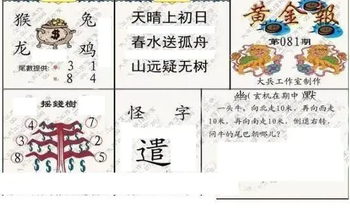 猴 兔
龙 鸡
尾數提供: 3 1
8 4
天晴上初日
春水送孤舟
山远疑无树
黄金報
第081期
大兵工作室制作
摇錢樹
④ ①
⑦ ②
⑧ ⑤
怪字
遣
幽(玄机在期中)默
一头牛，向北走10米，再向西走
10米，再向南走10米，倒退右转，
问牛的尾巴朝哪儿?